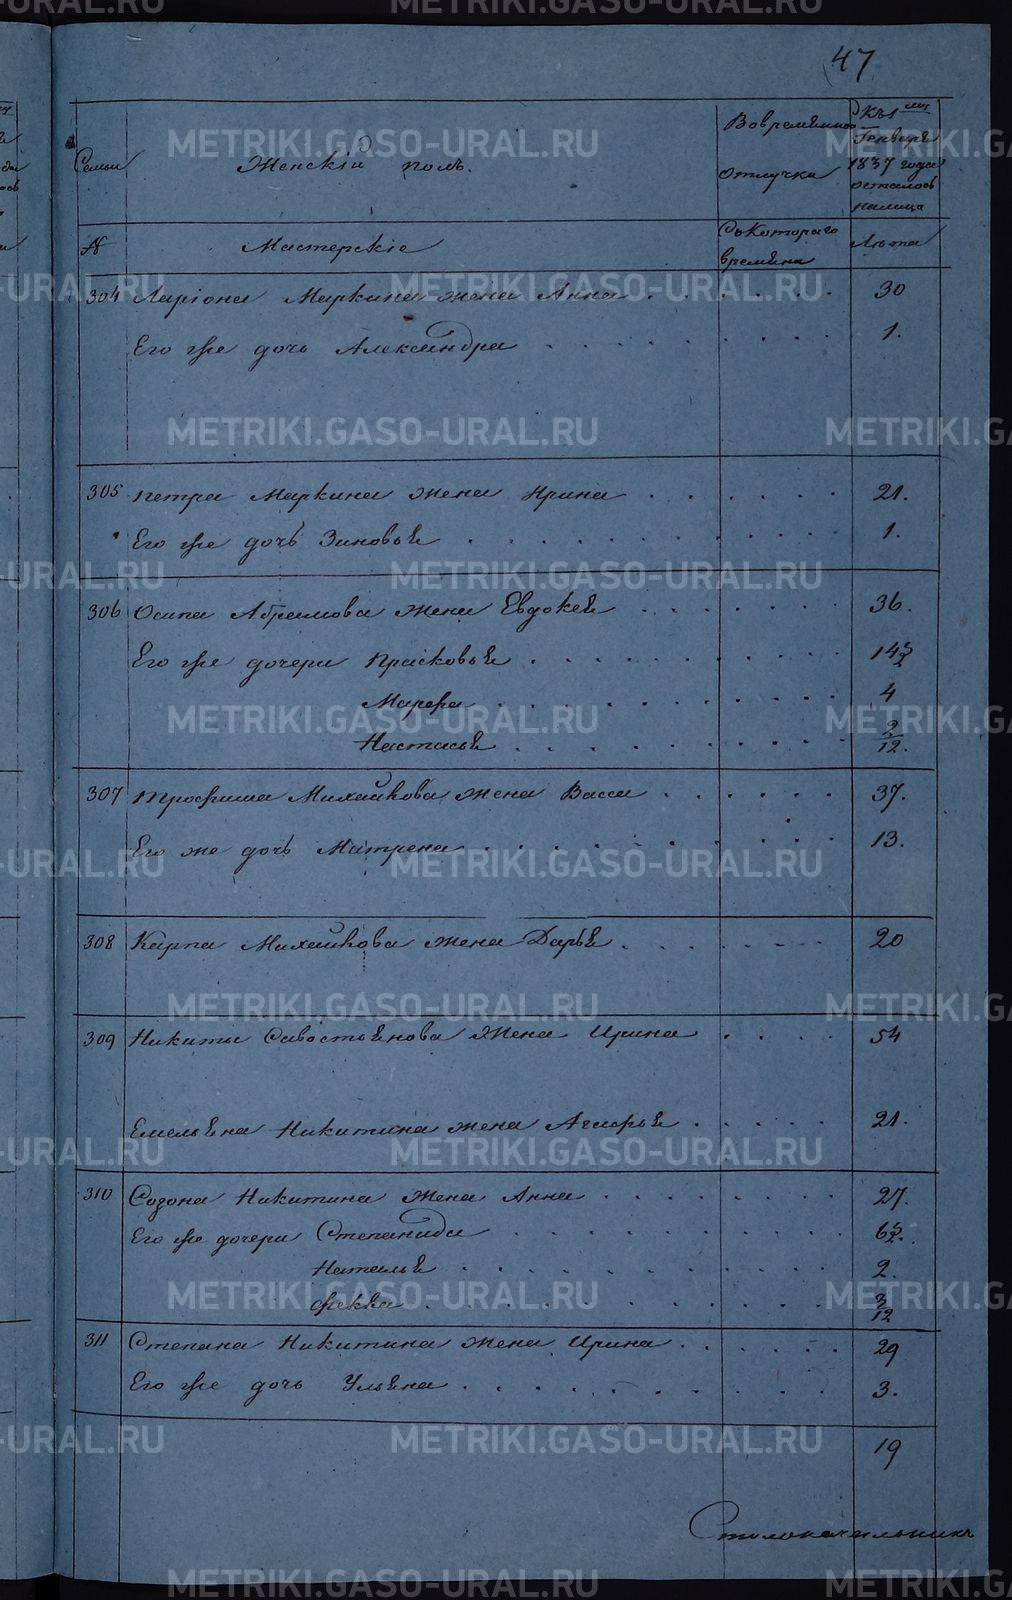 47
Семьи Женскій полъ. Вовремянной отлучки Къ 1 Генваря 1837 года осталось налицо
№ Мастерскіе Съ Котораго времѣна Лѣта
304 Ларіона Маркина жена Анна 30
Его же дочь Александра 1.
305 Петра Маркина жена Ирина 21.
Его же дочь Зиновья 1.
306 Осипа Абрамова жена Евдокѣя 36.
Его же дочери Прасковья 14
Марфа 4
Настасья 2/12.
307 Трофима Михайлова жена Васса 37.
Его же дочь Матрена 13.
308 Карпа Михайлова жена Дарья 20
309 Никиты Савостьянова жена Ирина 54
Емельяна Никитина жена 21.
310 Созона Никитина жена Анна 27.
Его же дочери Степанида 6
Наталья 2.
Фекла 3/12
311 Степана Никитина жена Ирина 29
Его же дочь Ульяна 3.
19
Столоначальникъ
METRIKI.GASO-URAL.RU